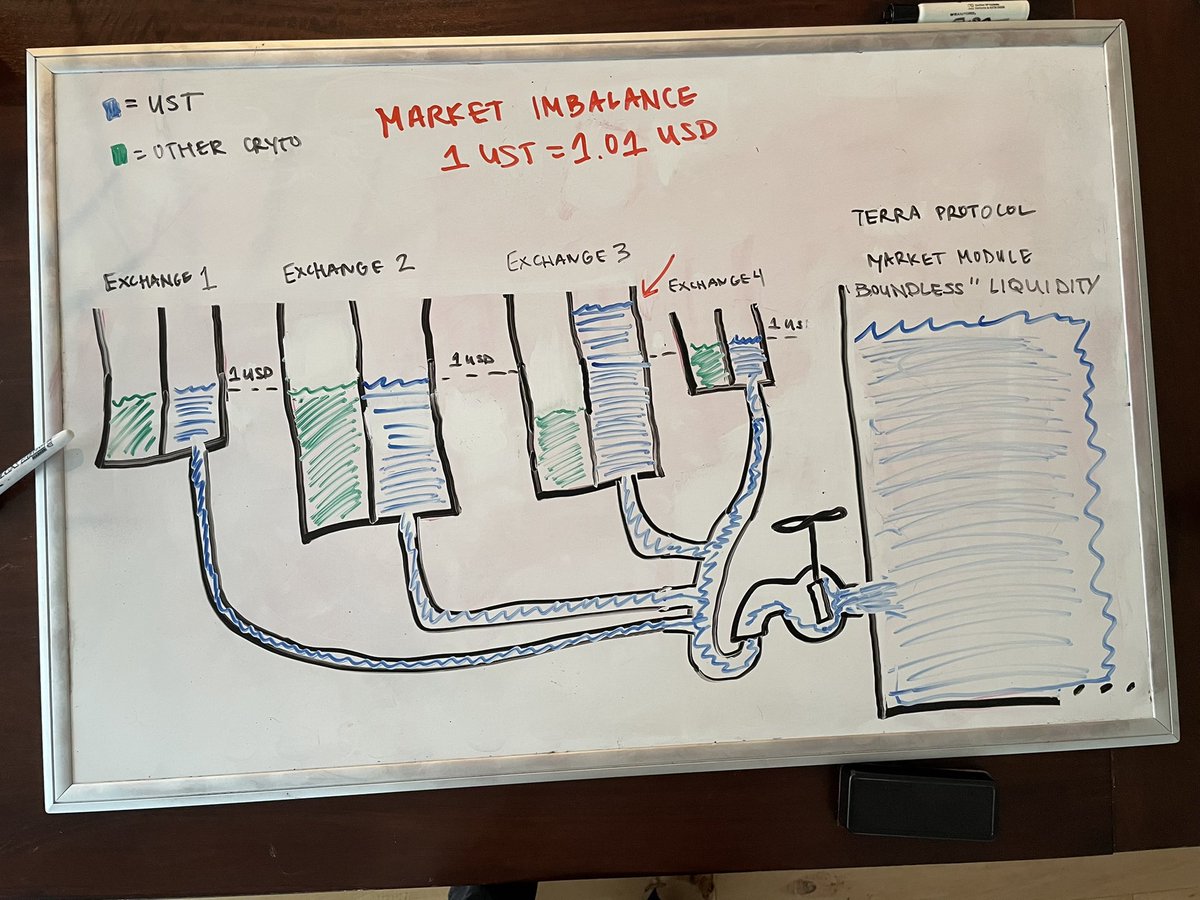 = UST
= OTHER CRYTO
MARKET IMBALANCE
1 UST = 1.01 USD
EXCHANGE 1
EXCHANGE 2
EXCHANGE 3
EXCHANGE 4
TERRA PROTOCOL
MARKET MODULE
"BOUNDLESS" LIQUIDITY
1 USD
1 USD
1 US